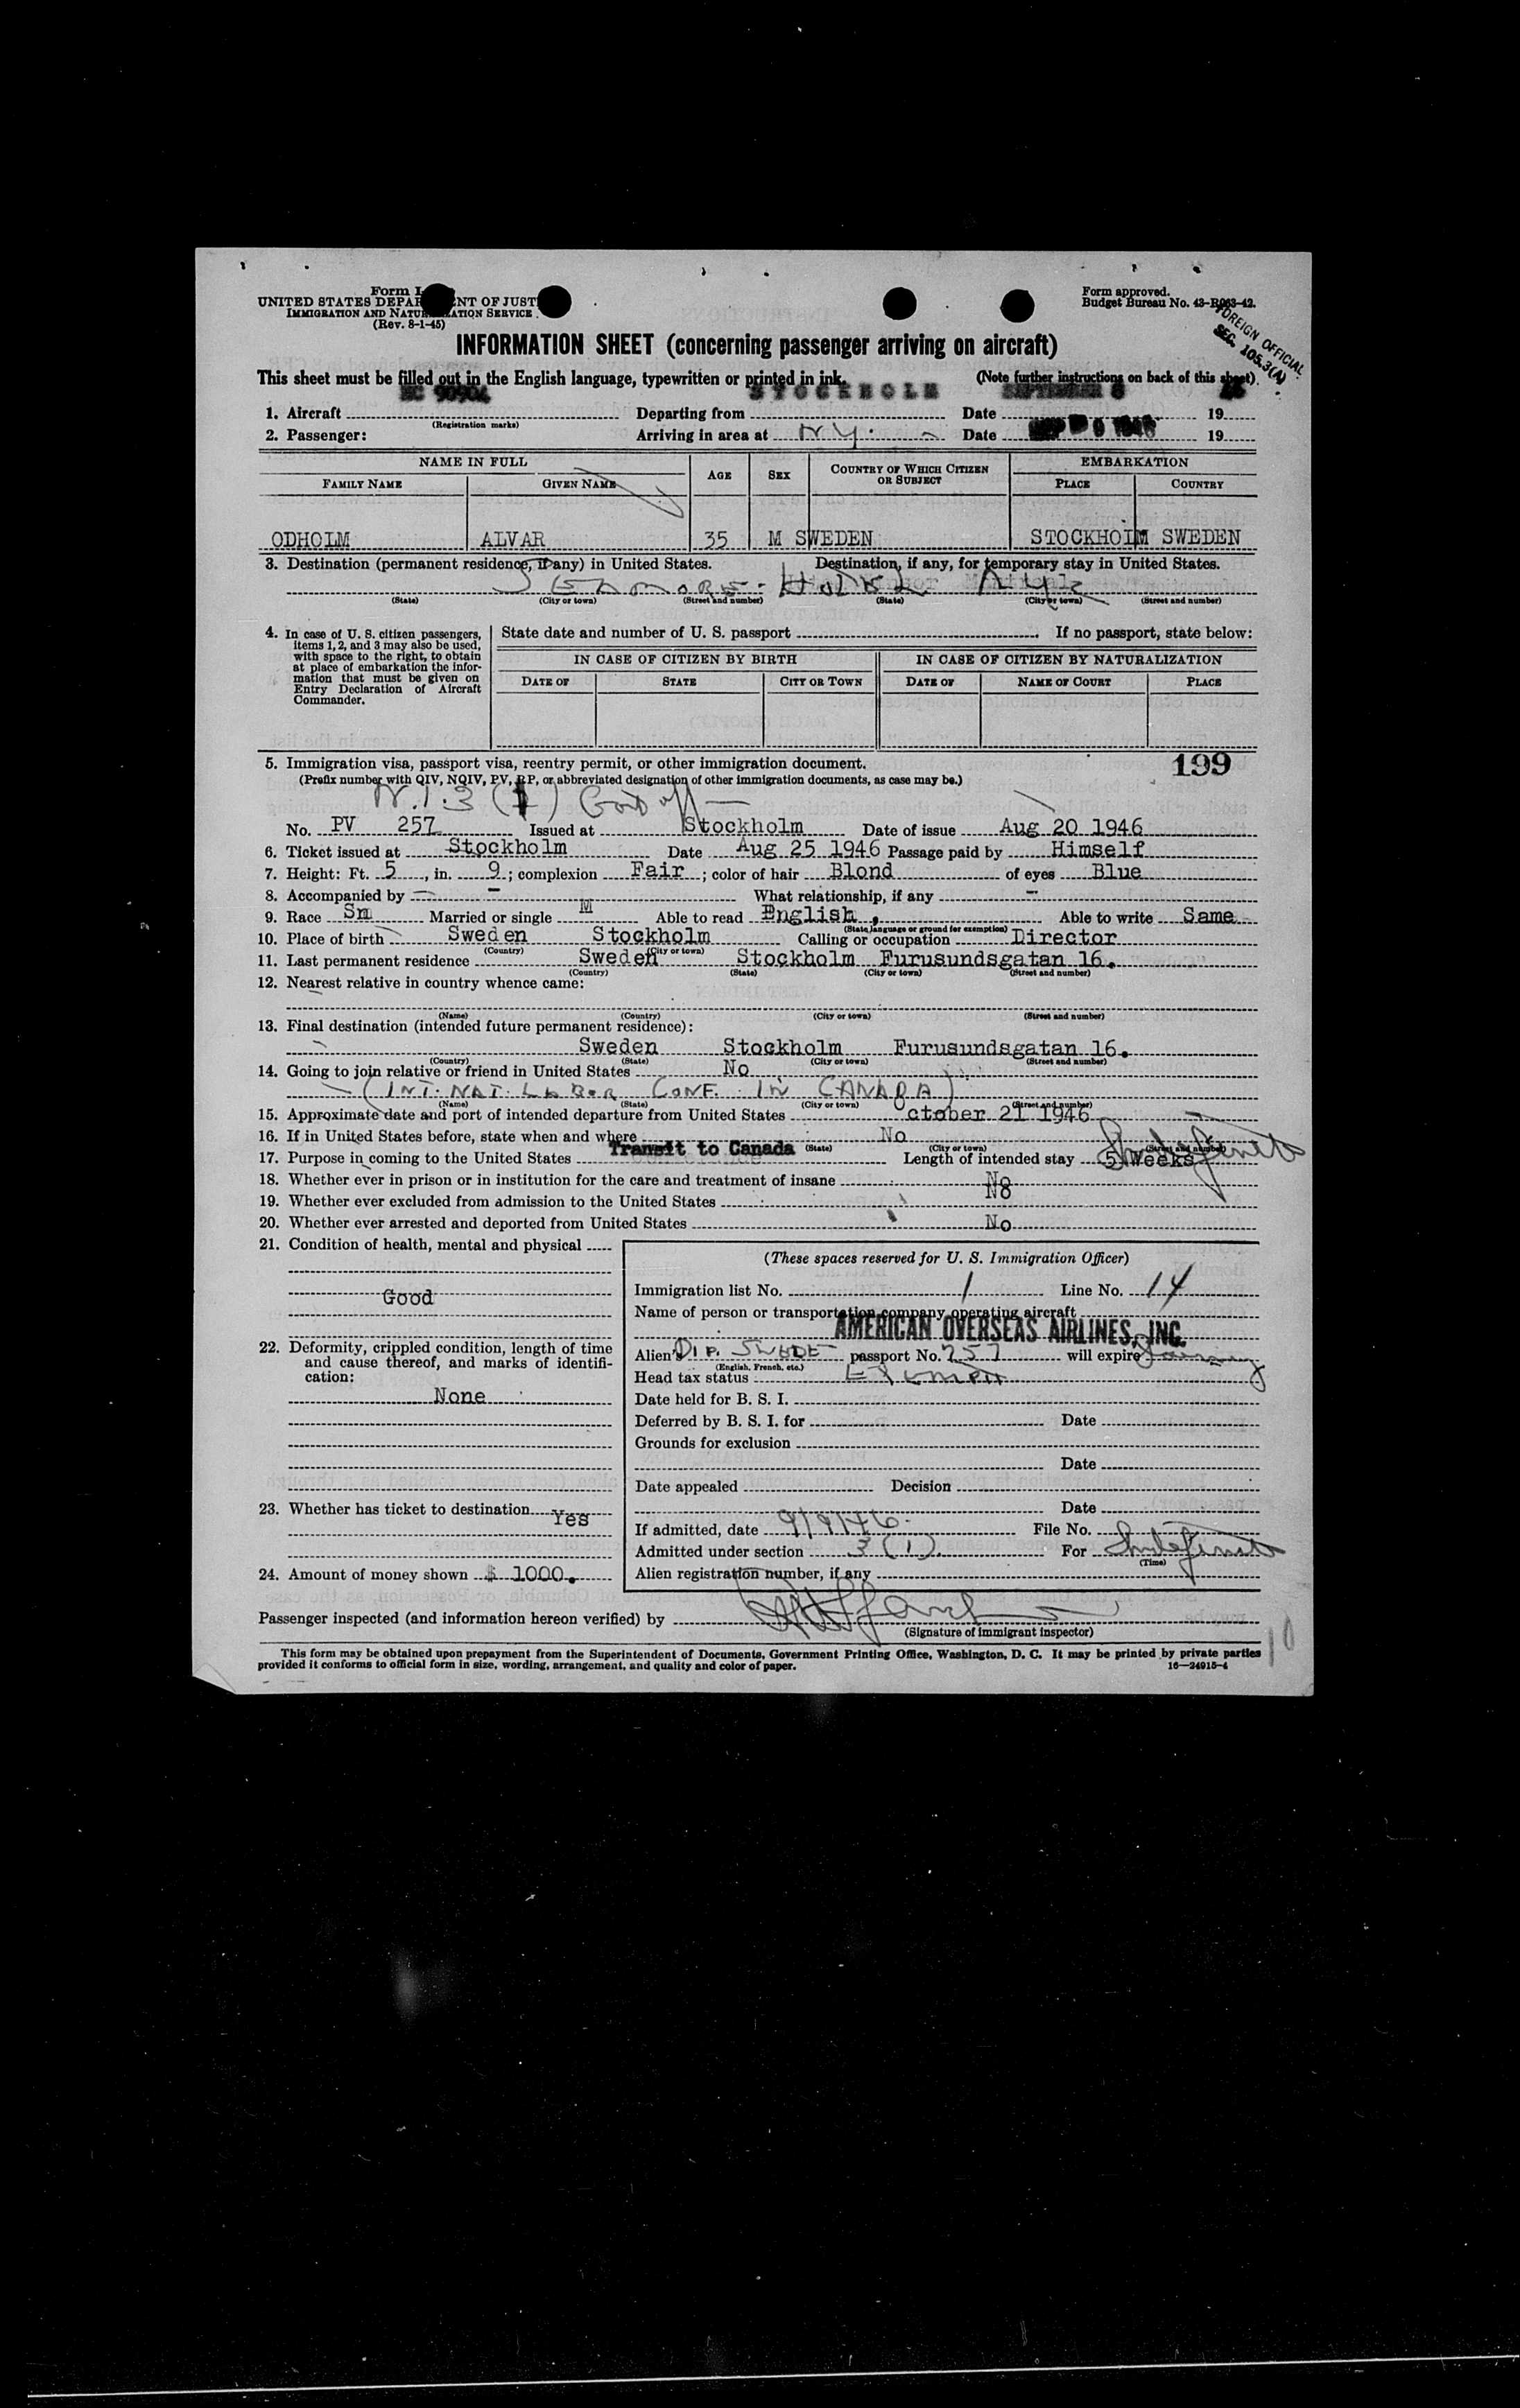 Form I
UNITED STATES DEPA NT OF JUST
IMMIGRATION AND NATU ATION SERVICE
(Rev. 8-1-45)
Form approved.
Budget Bureau No. 43-R063-42.
FOREIGN OFFICIAL
SEC. 105.3(A)
INFORMATION SHEET (concerning passenger arriving on aircraft)
This sheet must be filled out in the English language, typewritten or printed in ink. (Note further instructions on back of this sheet).
NC 90904 STOCKHOLM SEPTEMBER 8 46
1. Aircraft Departing from Date 19
(Registration marks)
2. Passenger: Arriving in area at N.Y. Date SEP 9 1946 19
NAME IN FULL AGE SEX COUNTRY OF WHICH CITIZEN OR SUBJECT EMBARKATION
FAMILY NAME GIVEN NAME PLACE COUNTRY
ODHOLM ALVAR 35 M SWEDEN STOCKHOLM SWEDEN
3. Destination (permanent residence, if any) in United States. Destination, if any, for temporary stay in United States.
Hotel
(State) (City or town) (Street and number) (State) (City or town) (Street and number)
4. In case of U. S. citizen passengers, items 1, 2, and 3 may also be used, with space to the right, to obtain at place of embarkation the information that must be given on Entry Declaration of Aircraft Commander.
State date and number of U. S. passport . If no passport, state below:
IN CASE OF CITIZEN BY BIRTH IN CASE OF CITIZEN BY NATURALIZATION
DATE OF STATE CITY OR TOWN DATE OF NAME OF COURT PLACE
5. Immigration visa, passport visa, reentry permit, or other immigration document. 199
(Prefix number with QIV, NQIV, PV, RP, or abbreviated designation of other immigration documents, as case may be.)
3 (1)
No. PV 257 Issued at Stockholm Date of issue Aug 20 1946
6. Ticket issued at Stockholm Date Aug 25 1946 Passage paid by Himself
7. Height: Ft. 5, in. 9; complexion Fair; color of hair Blond of eyes Blue
8. Accompanied by - - What relationship, if any -
9. Race Sm Married or single M Able to read English. Able to write Same
(State language or ground for exemption)
10. Place of birth Sweden Stockholm Calling or occupation Director
(Country) (City or town)
11. Last permanent residence Sweden Stockholm Furusundsgatan 16.
(Country) (State) (City or town) (Street and number)
12. Nearest relative in country whence came:
(Name) (Country) (City or town) (Street and number)
13. Final destination (intended future permanent residence):
Sweden Stockholm Furusundsgatan 16.
(Country) (State) (City or town) (Street and number)
14. Going to join relative or friend in United States No
(INT. NAT. LABOR CONF. IN CANADA)
(Name) (State) (City or town) (Street and number)
15. Approximate date and port of intended departure from United States October 21 1946
16. If in United States before, state when and where No
(State) (City or town) (Street and number)
17. Purpose in coming to the United States Transit to Canada Length of intended stay 5 Weeks Indefinite
18. Whether ever in prison or in institution for the care and treatment of insane No
19. Whether ever excluded from admission to the United States No
20. Whether ever arrested and deported from United States No
21. Condition of health, mental and physical
Good
22. Deformity, crippled condition, length of time and cause thereof, and marks of identification:
None
23. Whether has ticket to destination Yes
24. Amount of money shown $ 1000.
(These spaces reserved for U. S. Immigration Officer)
Immigration list No. 1 Line No. 14
Name of person or transportation company operating aircraft
AMERICAN OVERSEAS AIRLINES, INC.
Alien's DIP. SWEDE passport No. 257 will expire
(English, French, etc.)
Head tax status Exempt
Date held for B. S. I.
Deferred by B. S. I. for Date
Grounds for exclusion
Date
Date appealed Decision
Date
If admitted, date 9/9/46. File No.
Admitted under section 3(1). For Indefinite
(Time)
Alien registration number, if any
Passenger inspected (and information hereon verified) by
(Signature of immigrant inspector)
10
This form may be obtained upon prepayment from the Superintendent of Documents, Government Printing Office, Washington, D. C. It may be printed by private parties
provided it conforms to official form in size, wording, arrangement, and quality and color of paper. 16—24915-4